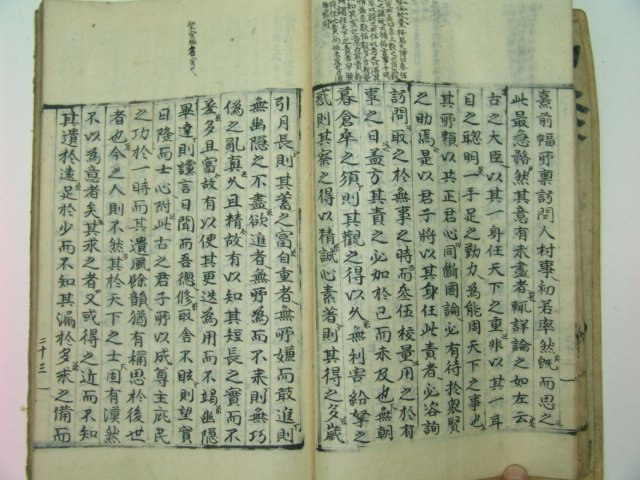 熹前幅所禀訪問人材事初若率然旣而思之
此最急務然其意有未盡者輒詳論之如左云
古之大臣以其一身任天下之重非以其一耳
目之聰明一手足之勤力爲能周天下之事也
其所賴以共正君心同斷國論必有待於衆賢
之助焉是以君子將以其身任此責者必咨詢
訪問取之於無事之時而叅伍校量用之於有
事之日盖方其責之必加於已而未及也無朝
暮倉卒之須則其觀之得以久無利害紛拏之
惑則其察之得以精誠心素著則其得之多歲
引月長則其蓄之富自重者無所嫌而敢進則
無幽隱之不盡欲進者無所爲而不来則無巧
僞之亂眞久且精故有以知其短長之實而不
差多且富故有以使其更迭爲用而不竭幽隱
畢達則讜言日聞而吾德修取舍不眩則望實
日隆而士心附此古之君子所以成尊主庇民
之功於一時而其遺風餘韻猶有稱思於後世
者也今之人則不然其於天下之士固有漠然
不以爲意者矣其求之者又或得之近而不知
其遺於遠足於少而不知其漏於多求之備而
二十三